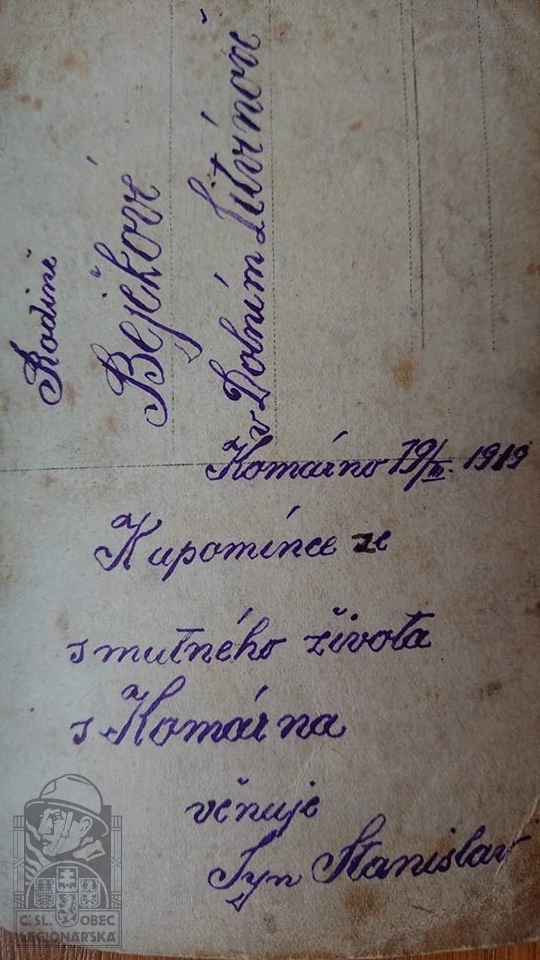 Rodině
Bejčkově
v Dolním Litvínově
Komárno 19/III. 1919
Kupomínce ze
smutného života
s Komárna
věnuje
Syn Stanislav
Č.SL. OBEC
LEGIONÁŘSKÁ